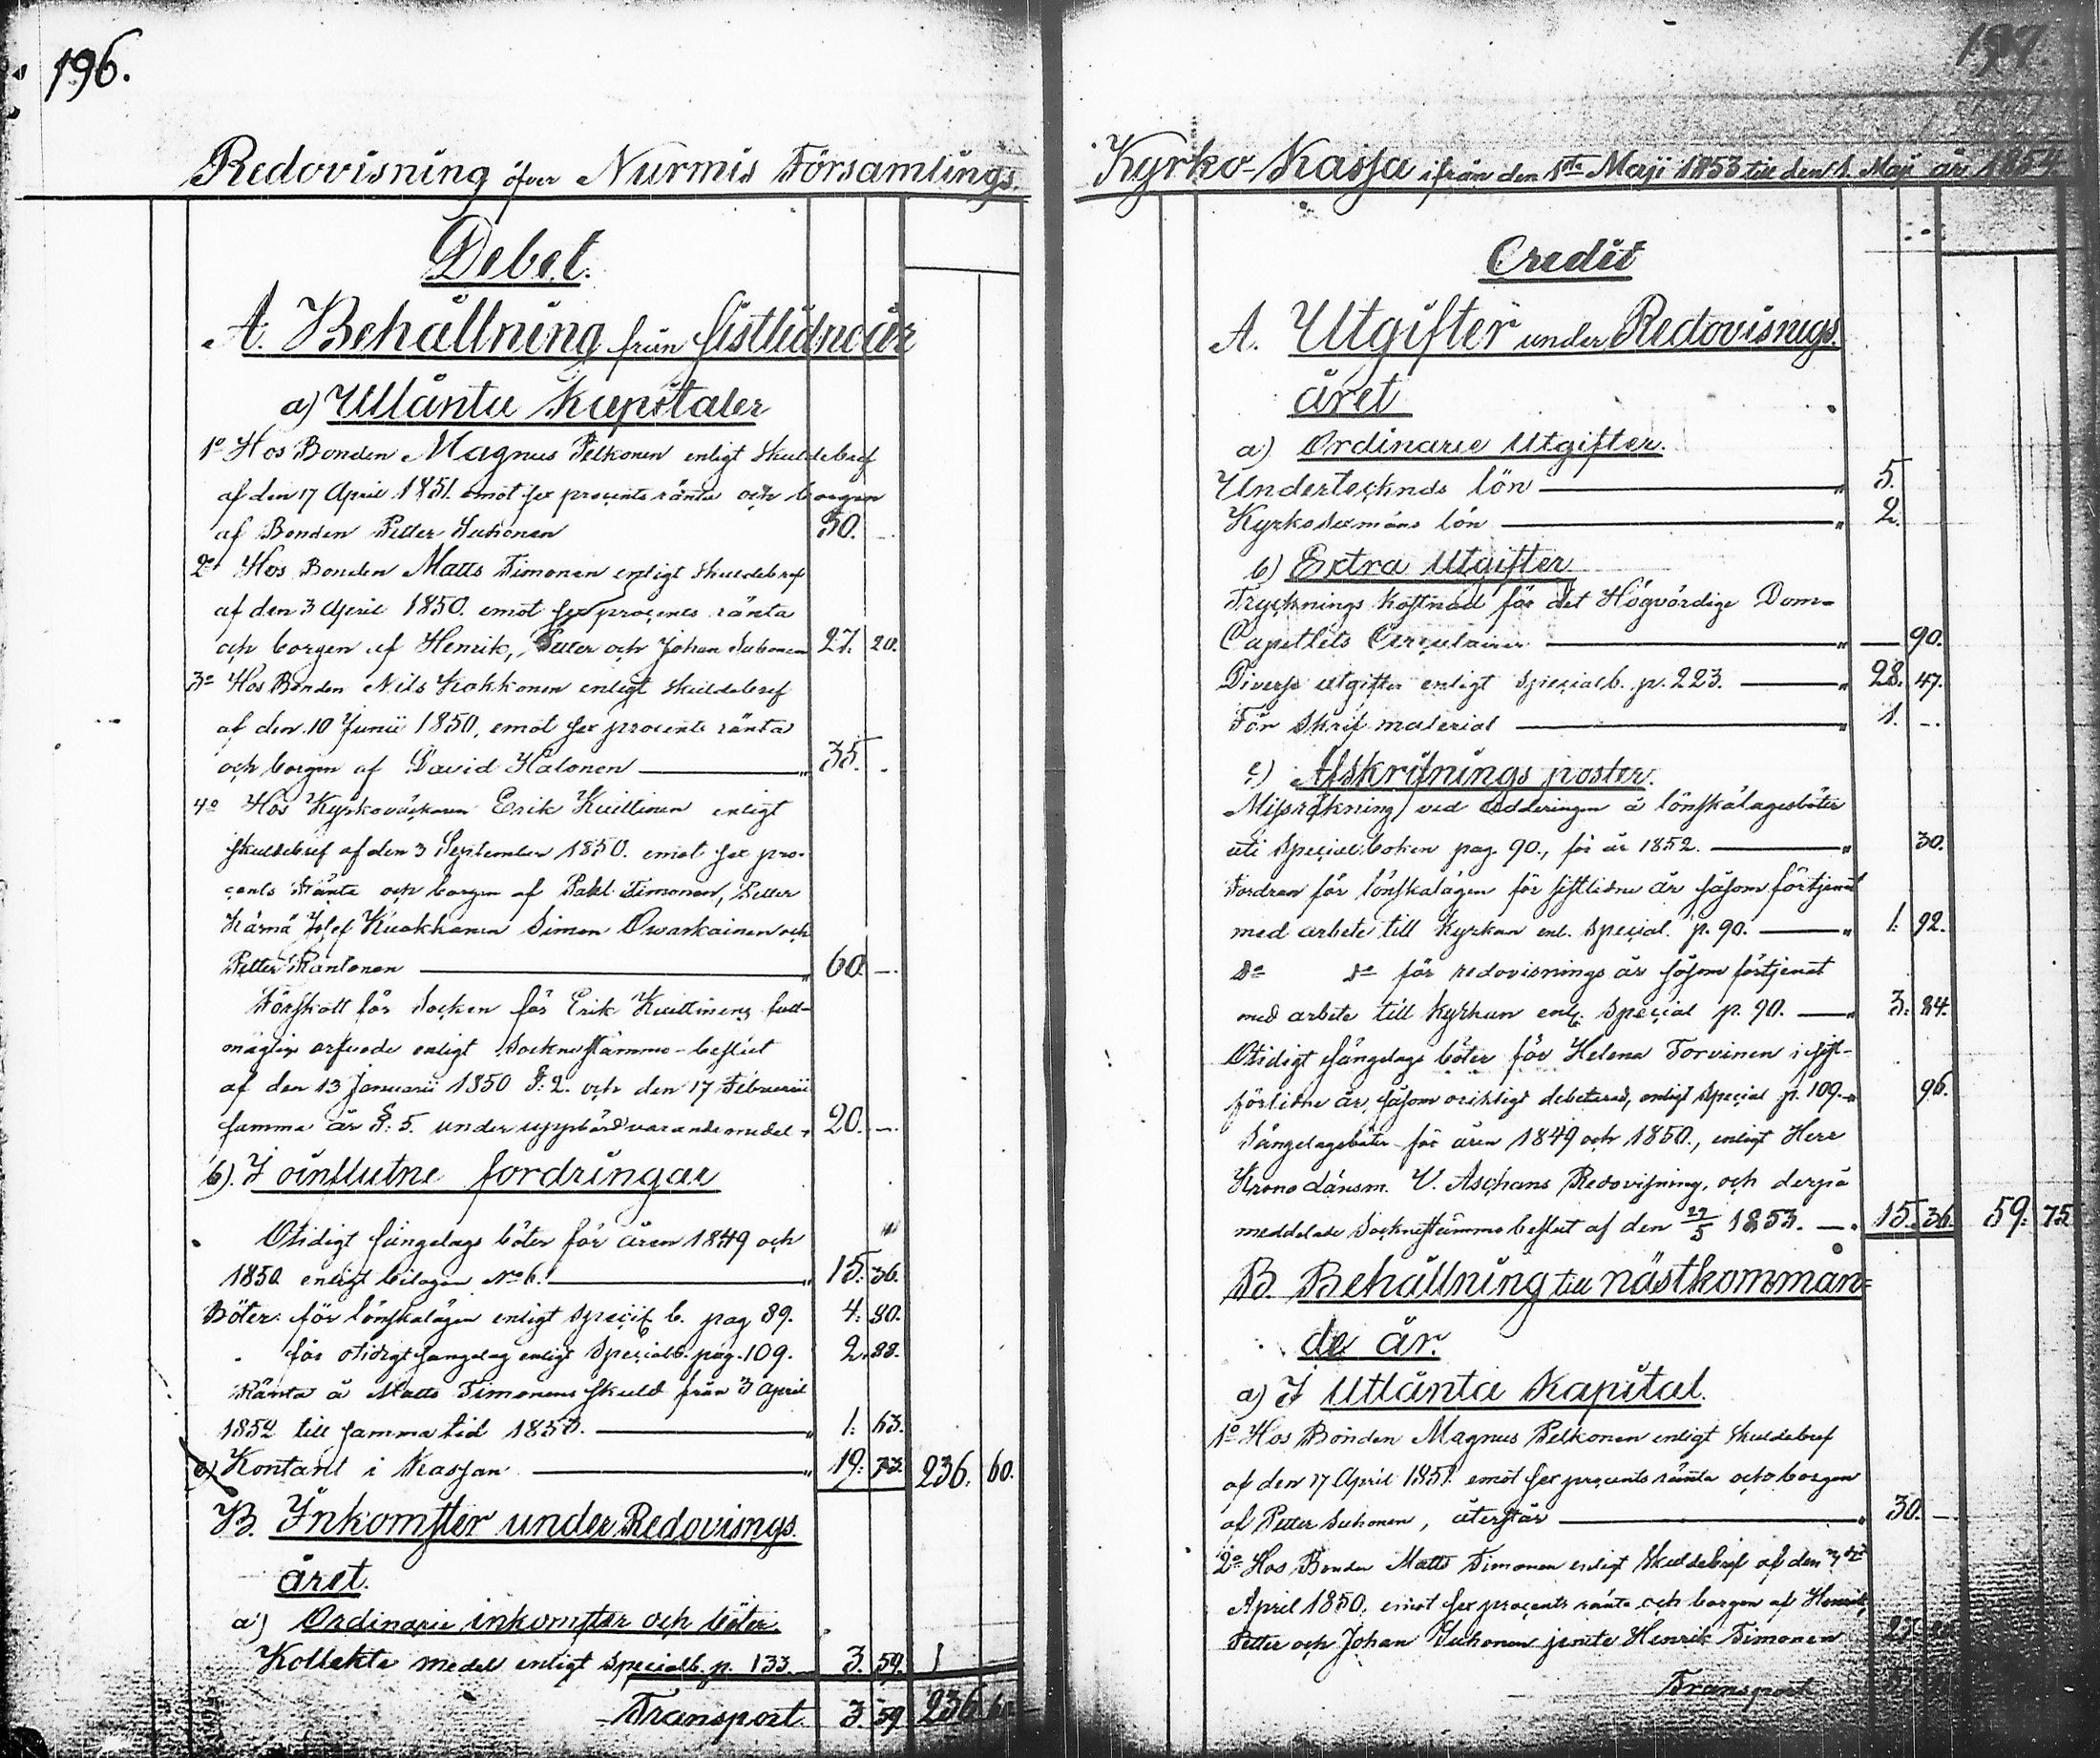 196.
Redovisning öfver Nurmis Församlings
Debet.
A. Behållning från sistlidne år
a) Utlånta Kapitaler
1º Hos Bonden Magnus Pelkonen enligt Skuldebref
af den 17 April 1851. emot sex procents ränta och borgen
af Bonden Petter Suhonen 50. -
2º Hos Bonden Matts Timonen enligt Skuldebref
af den 3 April 1850. emot sex procents ränta
och borgen af Henrik, Petter och Johan Suhonen 27. 20.
3º Hos Bonden Nils Kokkonen enligt Skuldebref
af den 10 Junii 1850, emot sex procents ränta
och borgen af David Halonen " 35. -
4º Hos Kyrkoväktaren Erik Kuittinen enligt
skuldebref af den 3 September 1850. emot sex pro-
cents Ränta och borgen af Pahl Timonen, Petter
Kärnä Josef Kuokkanen Simon Owaskainen och
Petter Rantonen " 60. -
Förskott för Socken för Erik Kuittinens full-
mäglige arfvode enligt Sockne stämmo-beslut
af den 13 Januarii 1850 §: 2. och den 17 Februarii
samma år §: 5. under uppbörd varande medel " 20. -
b). I oinflutne fordringar
Otidigt sängelags böter för åren 1849 och
1850 enligt bilagan No 6. " 15. 36.
Böter för lönskalägen enligt specif. b. pag 89. 4. 80.
" för otidigt sängelag enligt Specialb. pag. 109. 2. 88.
Ränta å Matts Timonens skuld från 3 April
1852 till samma tid 1853. " 1. 63.
c) Kontant i Kassan " 19. 73. 236. 60.
B. Inkomster under Redovisngs
året.
a) Ordinarie inkomster och böter.
Kollekte medel enligt Specialb. p. 133. 3. 59.
Transport. 3. 59 236. 60
197
Kyrko-Kassa ifrån den 1sta Maji 1853 till den 1. Maji år 1854
Credit
A. Utgifter under Redovisnigs.
året
a) Ordinarie Utgifter.
Undertecknds lön " 5.
Kyrkovermäns lön " 2.
b) Extra Utgifter
Trycknings Kostnad för det Högvördige Dom-
Capetlets Circulairer " — 90.
Diverse utgifter enligt Specialb. p. 223. " 28. 47.
För Skrif material " 1. -
c) Afskrifnings poster.
Missräkning ved adderingen å lönskalagesböter
uti Special boken pag. 90., för år 1852. " 30.
Fordran för lönskalägen för sistlidne år såsom förtjenat
med arbete till Kyrkan enl. Special. p. 90. " 1. 92.
Do do för redovisnings år såsom förtjenat
med arbete till Kyrkan enl. Special p. 90. " 3. 84.
Otidigt sängelags böter för Helena Torvinen i sist-
förlidne år, såsom oriktigt debeterad, enligt Special p. 109. " 96.
Sängelagsböter för åren 1849 och 1850., enligt Herr
Krono Länsm. V. Aschans Redovisning, och derpå
meddelade Socknestämmo beslut af den 27/5 1853. — " 15. 36. 59. 75
B. Behållning till nästkomman-
de år.
a) I Utlånta Kapital.
1º Hos Bonden Magnus Pelkonen enligt Skuldebref
af den 17 April 1851. emot sex procents ränta och borgen
af Petter Suhonen, återstår " 30. -
2º Hos Bonden Matts Timonen enligt Skuldebref af den 3dje
April 1850. emot sex procents ränta och borgen af Henrik,
Petter och Johan Suhonen jemte Henrik Timonen 27. 20
Transport